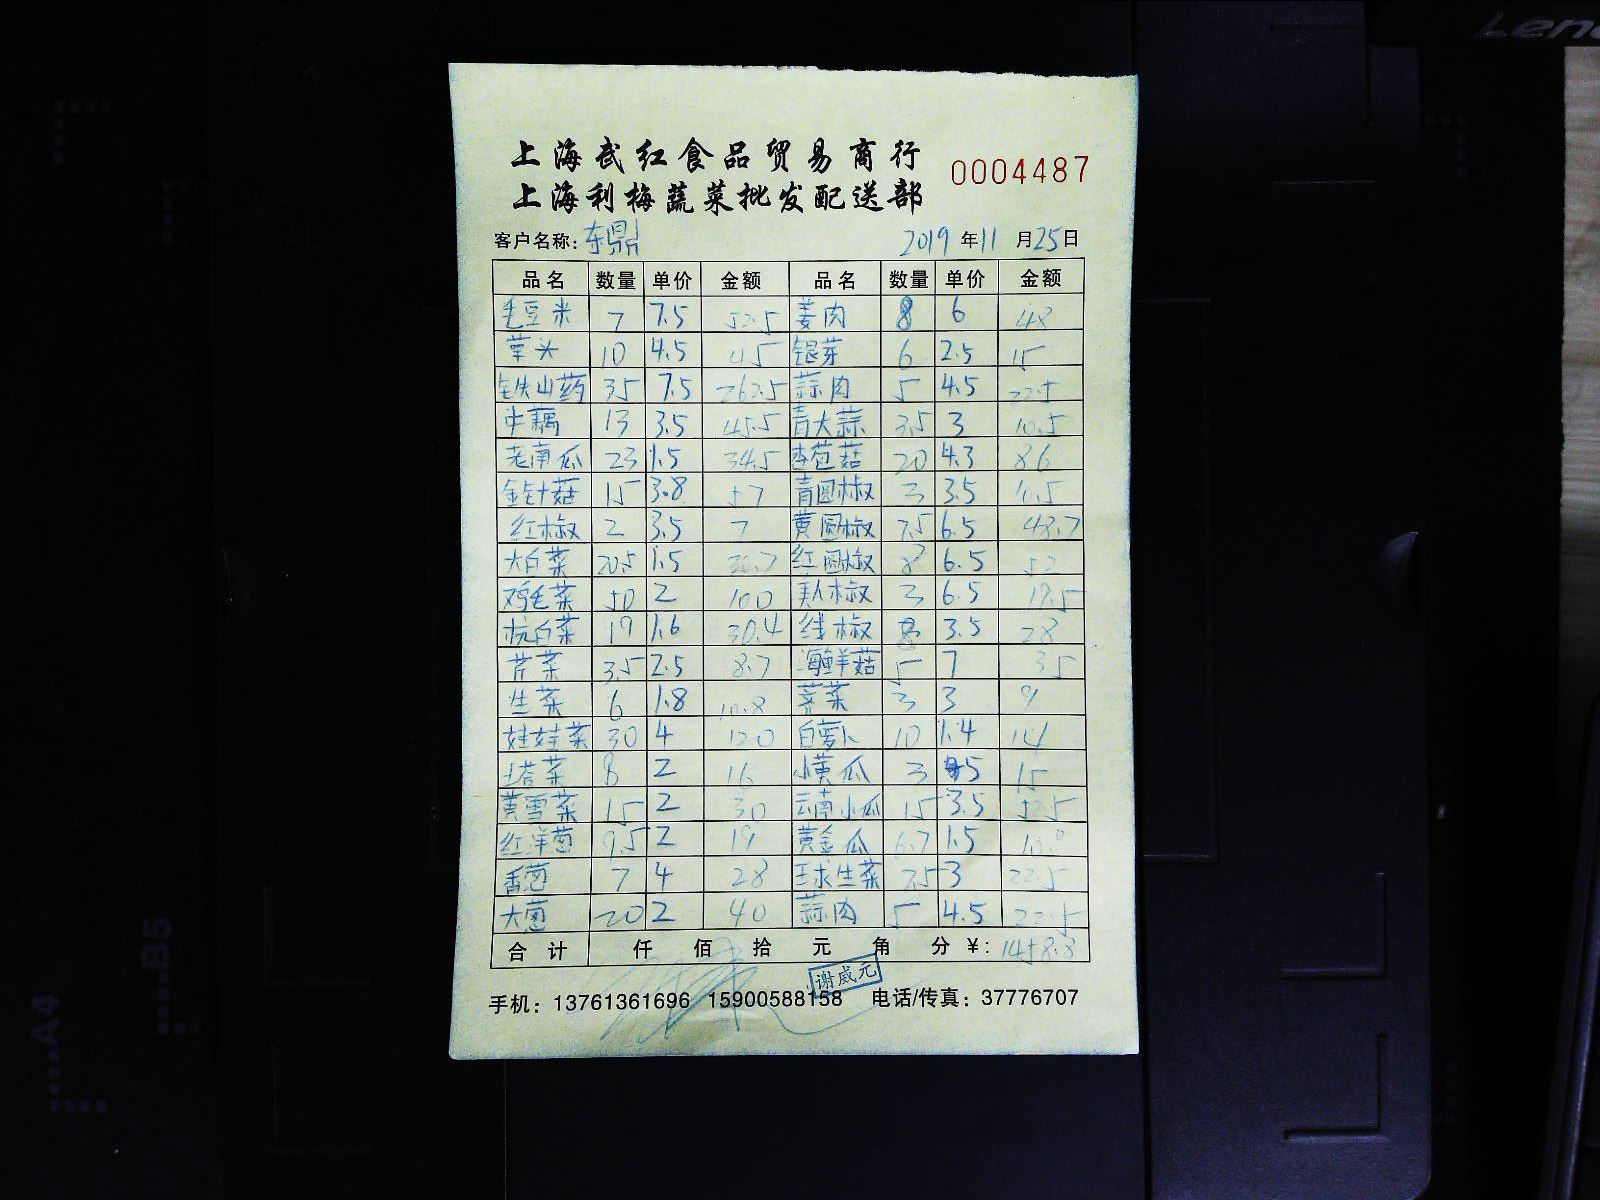 上海武红食品贸易商行
上海利梅蔬菜批发配送部
0004487
客户名称: 东鼎 2019年11月25日
品名 数量 单价 金额 品名 数量 单价 金额
毛豆米 7 7.5 52.5 姜肉 8 6 48
草头 10 4.5 45 银芽 6 2.5 15
铁山药 35 7.5 262.5 蒜肉 5 4.5 22.5
中藕 13 3.5 45.5 青大蒜 3.5 3 10.5
老南瓜 23 1.5 34.5 杏苞菇 20 4.3 86
金针菇 15 3.8 57 青圆椒 3 3.5 10.5
红椒 2 3.5 7 黄圆椒 7.5 6.5 48.7
大白菜 20.5 1.5 30.7 红圆椒 8 6.5 52
鸡毛菜 50 2 100 美人椒 3 6.5 19.5
杭白菜 19 1.6 30.4 线椒 8 3.5 28
芹菜 3.5 2.5 8.7 海鲜菇 5 7 35
生菜 6 1.8 10.8 荠菜 3 3 9
娃娃菜 30 4 120 白萝卜 10 1.4 14
塔菜 8 2 16 小黄瓜 3 5 15
黄雪菜 15 2 30 云南小瓜 15 3.5 52.5
红洋葱 9.5 2 19 黄金瓜 6.7 1.5
香葱 7 4 28 球生菜 7.5 3 22.5
大葱 20 2 40 蒜肉 5 4.5 22.5
合计 仟 佰 拾 元 角 分 ¥: 1458.8
谢威元
手机: 13761361696 15900588158 电话/传真: 37776707
Leno
A4
B5